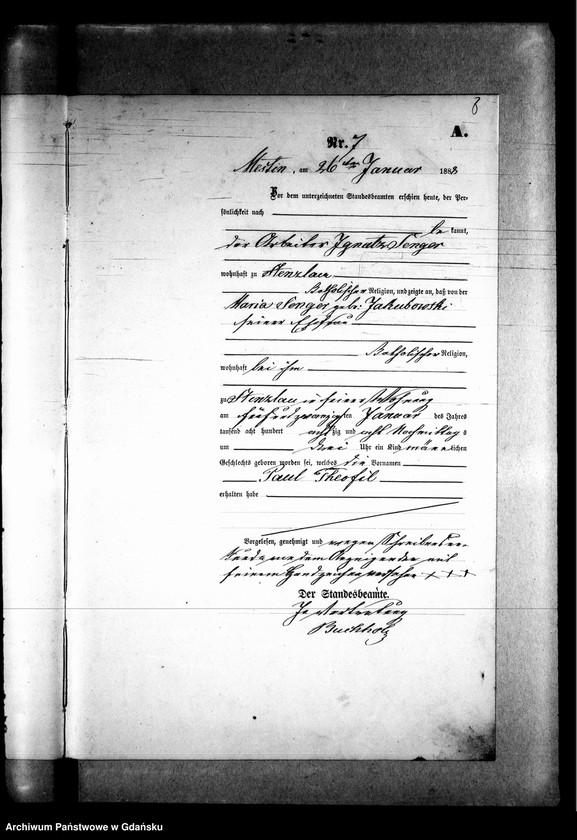 8
A.
Nr. 7
Mestin, am 26ten Januar 1888
Vor dem unterzeichneten Standesbeamten erschien heute, der Per-
sönlichkeit nach
be kannt,
der Arbeiter Ignatz Senger
wohnhaft zu Stenzlau
katholischer Religion, und zeigte an, daß von der
Maria Senger geb: Jakubowski
seiner Ehefrau
katholischer Religion,
wohnhaft bei ihm
zu Stenzlau in seiner Wohnung
am fünfundzwanzigten Januar des Jahres
tausend acht hundert achtzig und acht Nachmittags
um drei Uhr ein Kind männlichen
Geschlechts geboren worden sei, welches die Vornamen
Paul Theofil
erhalten habe
Vorgelesen, genehmigt und wegen Schreibensun-
kunde von dem Anzeigenden mit
seinem Handzeichen versehen + + +
Der Standesbeamte.
In Vertretung
Buchholz
Archiwum Państwowe w Gdańsku